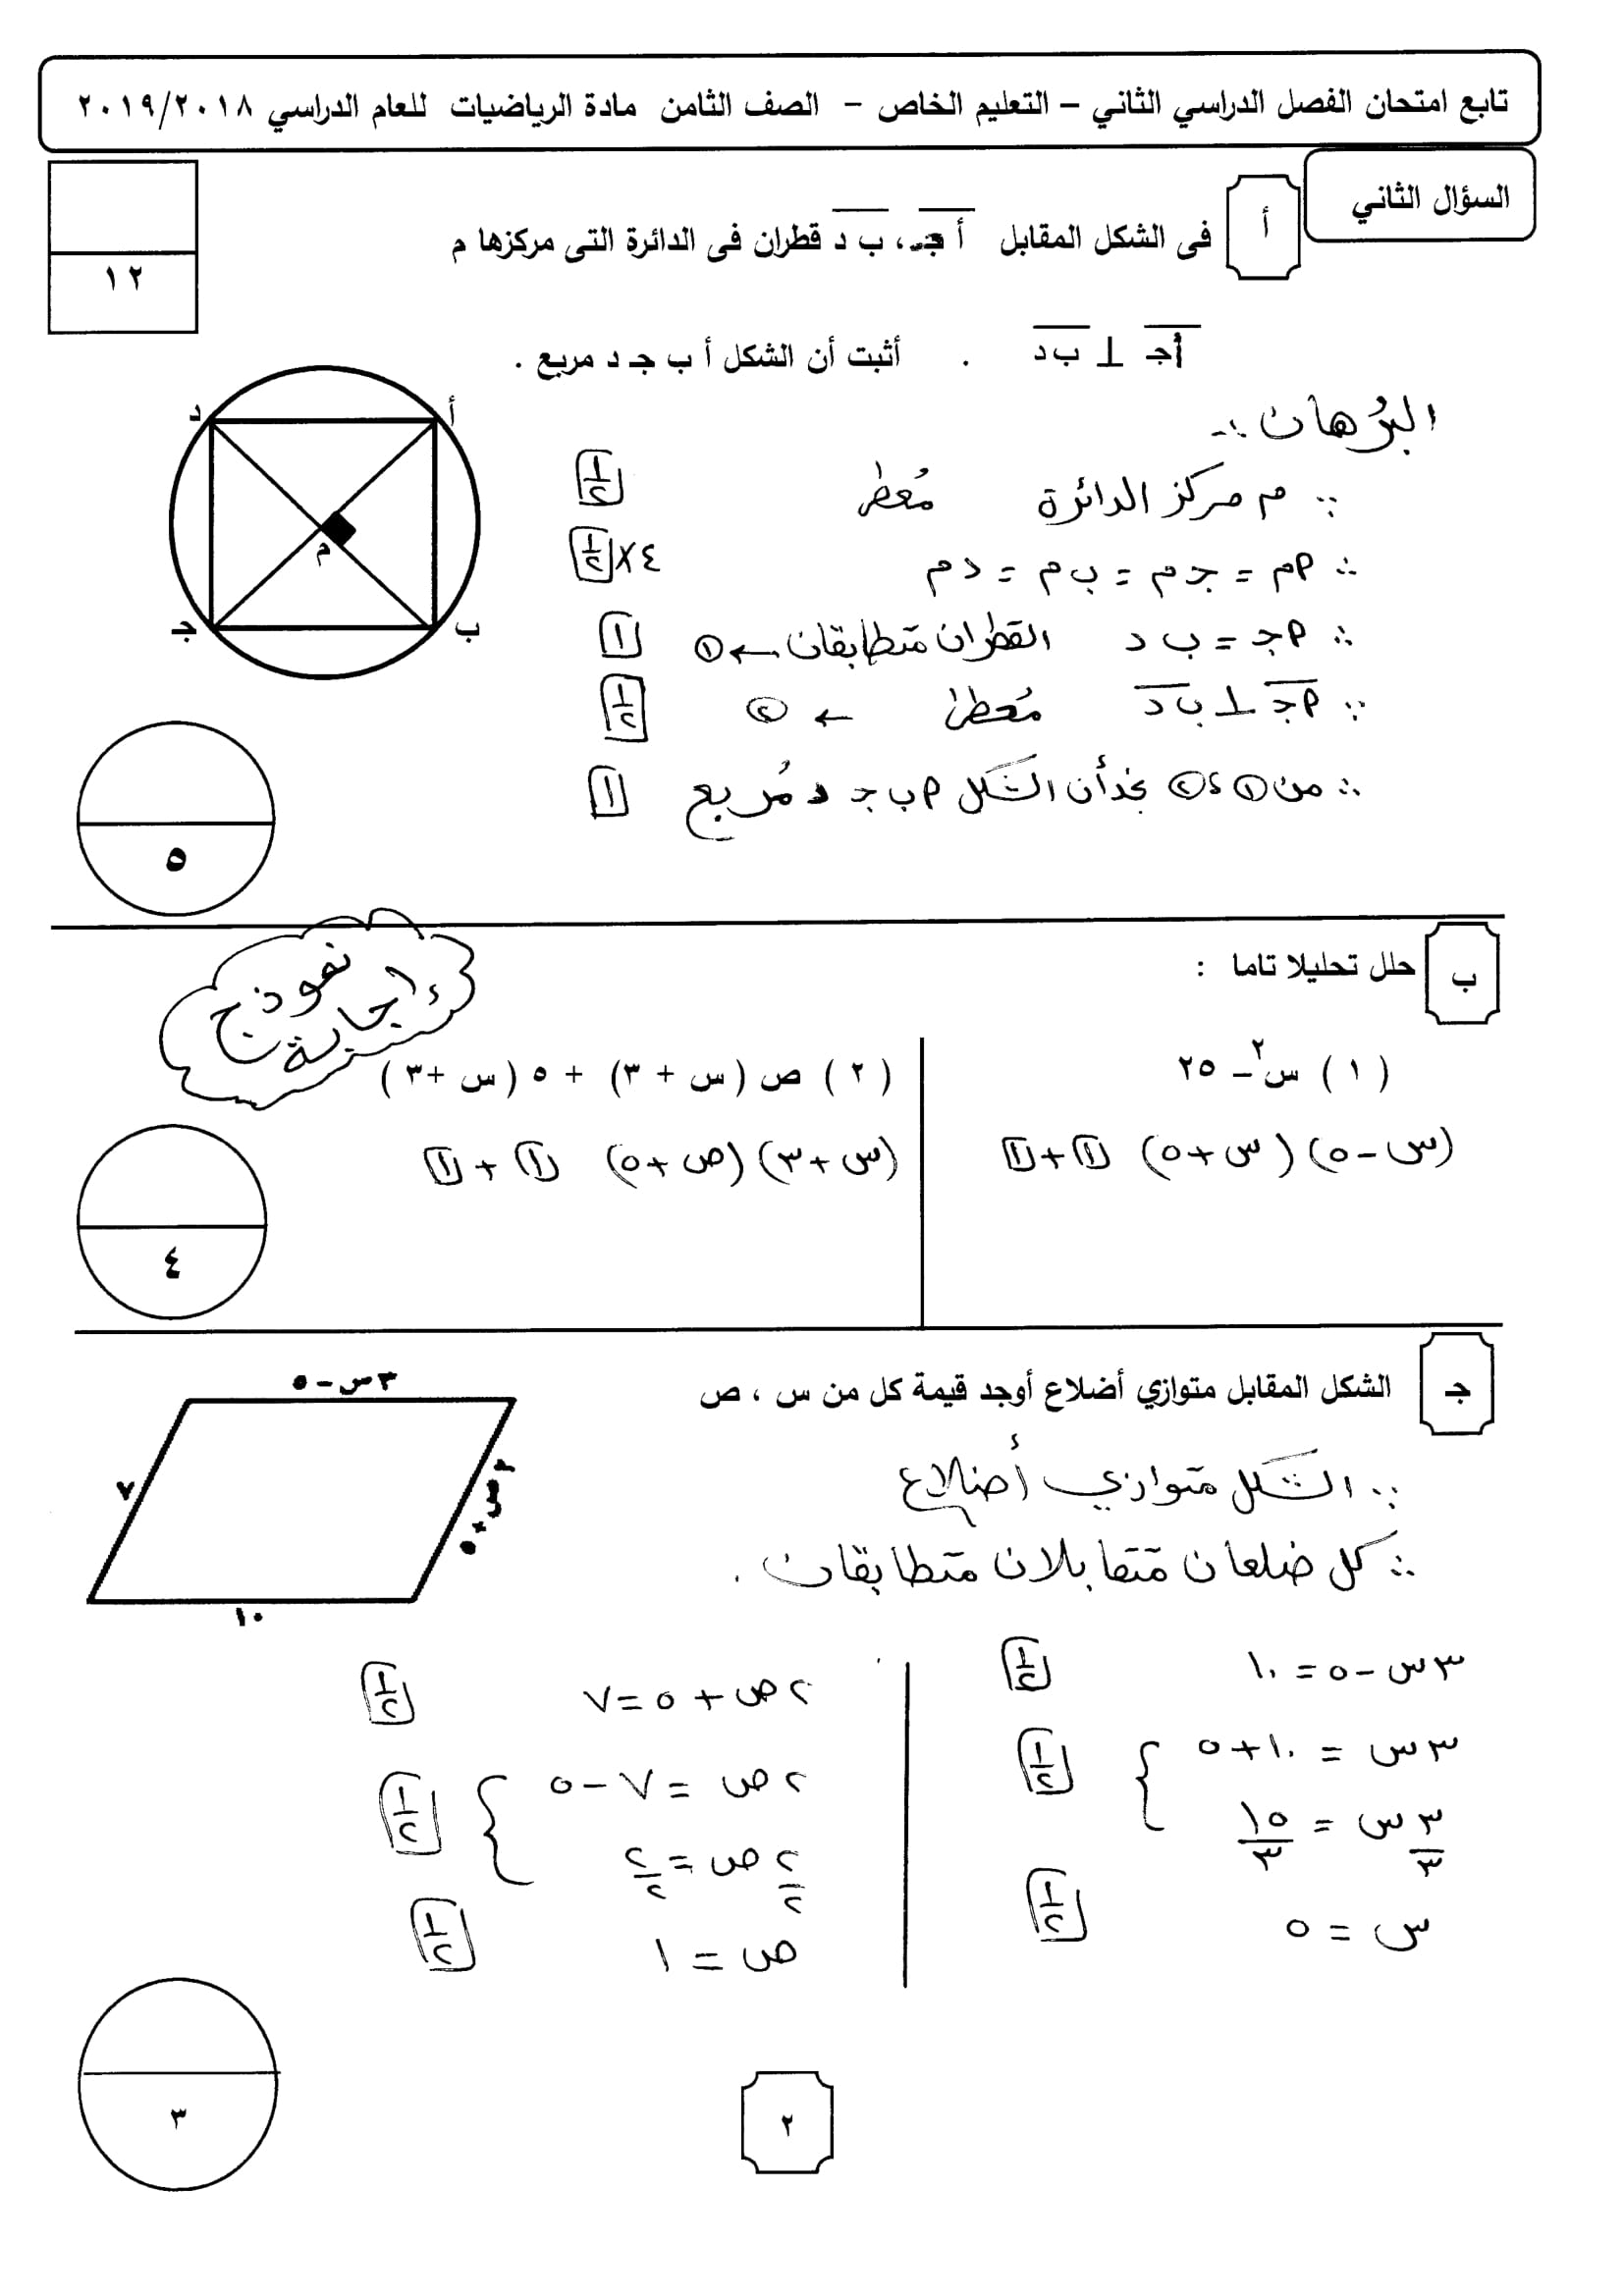 تابع امتحان الفصل الدراسي الثاني – التعليم الخاص – الصف الثامن مادة الرياضيات للعام الدراسي ٢٠١٩/٢٠١٨
السؤال الثاني
أ
فى الشكل المقابل أ جـ ، ب د قطران فى الدائرة التى مركزها م
١٢
أجـ ⊥ ب د . أثبت أن الشكل أ ب جـ د مربع .
د
أ
م
جـ
ب
البُرهان :-
∵ م مركز الدائرة مُعطى ١/٢
∴ أم = جـ م = ب م = د م ٤× ١/٢
∴ أجـ = ب د القطران متطابقان ← ① ١
∵ أجـ ⊥ ب د مُعطى ← ② ١/٢
∴ من ① ، ② نجد أن الشكل أ ب جـ د مُربع ١
٥
نموذج
إجابة
ب
حلل تحليلا تاما :
( ١ ) س٢ – ٢٥
(س - ٥) (س + ٥) ١ + ١
( ٢ ) ص (س + ٣) + ٥ (س +٣ )
(س + ٣) (ص + ٥) ١ + ١
٤
جـ
الشكل المقابل متوازي أضلاع أوجد قيمة كل من س ، ص
٣س – ٥
٧
٢ص + ٥
١٠
∵ الشكل متوازي أضلاع
∴ كل ضلعان متقابلان متطابقان .
٣س - ٥ = ١٠ ١/٢
٣س = ١٠ + ٥ ١/٢
٣س/٣ = ١٥/٣
س = ٥ ١/٢
٢ص + ٥ = ٧ ١/٢
٢ص = ٧ - ٥ ١/٢
٢ص/٢ = ٢/٢
ص = ١ ١/٢
٣
٢